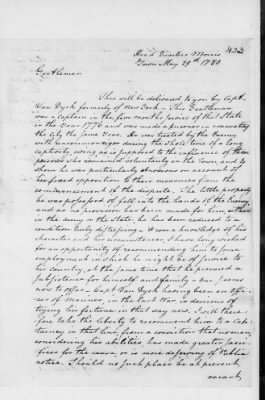 432
Head Quarters Morris
Town May 29th 1780
Gentlemen
This will be delivered to you by Capt.
Van Dyck formerly of New York - This Gentleman
was a Captain in the five months levies of that State
in the Year 1776 and was made a prisoner in evacuating
the City the same Year. He was treated by the Enemy
with uncommon rigor during the whole time of a long
captivity, owing as is supposed to the influence of those
persons who remained voluntarily in the Town and to
whom he was particularly obnoxious on account of
his fixed opposition to their measures from the
commencement of the dispute. The little property
he was possessed of fell into the hands of the Enemy
and as no provision has been made for him, either
in the army or the State he has been reduced to a
condition truly distressing - From a knowledge of his
character and his circumstances, I have long wished
for an opportunity of recommending him to some
employment in which he might be of service to
his country, at the same time that he procured a
subsistence for himself and family - One seems
now to offer - Capt. Van Dyck having been an Offi-
cer of Marines, in the last War, is desirous of
trying his fortune in that way now. I wish there-
fore take the liberty to recommend him to a Cap-
taincy in that line from a conviction that no man,
considering his abilities, has made greater sacri-
fices for the cause, or is more deserving of Public
notice. Should no such place be at present
vacant,